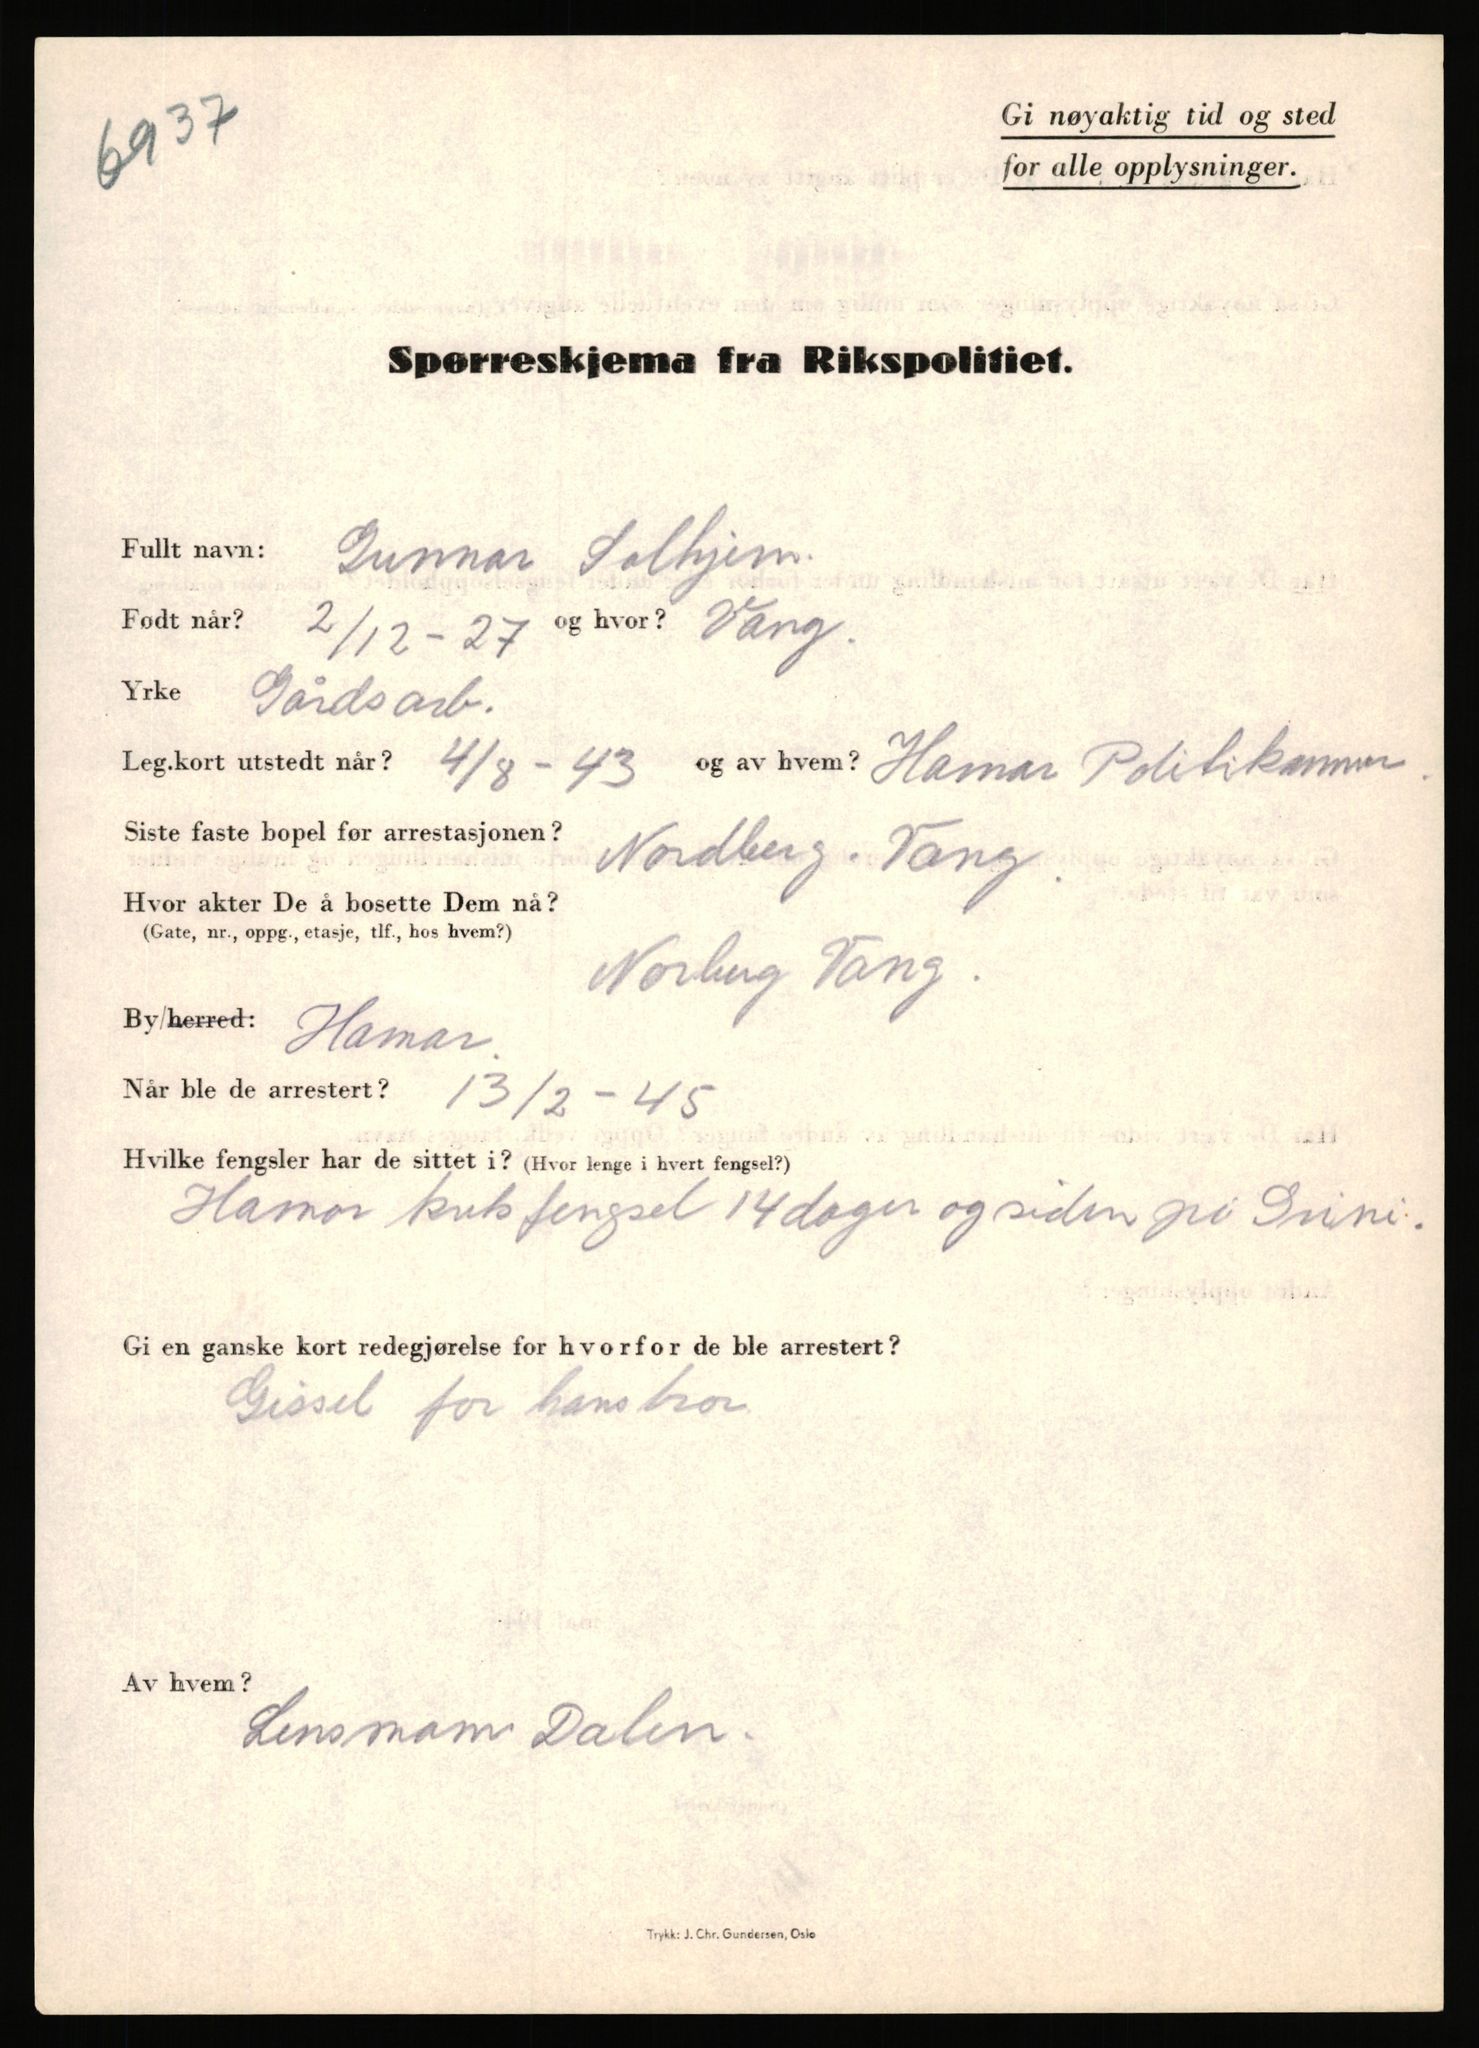 6937
Gi nøyaktig tid og sted
for alle opplysninger.
Spørreskjema fra Rikspolitiet.
Fullt navn: Gunnar Solhjem.
Født når? 2/12-27 og hvor? Vang.
Yrke Gårdsarb.
Leg.kort utstedt når? 4/8-43 og av hvem? Hamar Politikammer.
Siste faste bopel før arrestasjonen? Nordberg. Vang.
Hvor akter De å bosette Dem nå?
(Gate, nr., oppg., etasje, tlf., hos hvem?)
Norberg Vang.
By/herred: Hamar.
Når ble de arrestert? 13/2-45
Hvilke fengsler har de sittet i? (Hvor lenge i hvert fengsel?)
Hamar fengsel 14 dager og siden på Grini.
Gi en ganske kort redegjørelse for hvorfor de ble arrestert?
Gissel for hans bror
Av hvem?
Lensmann Dalen.
Trykk: J. Chr. Gundersen, Oslo